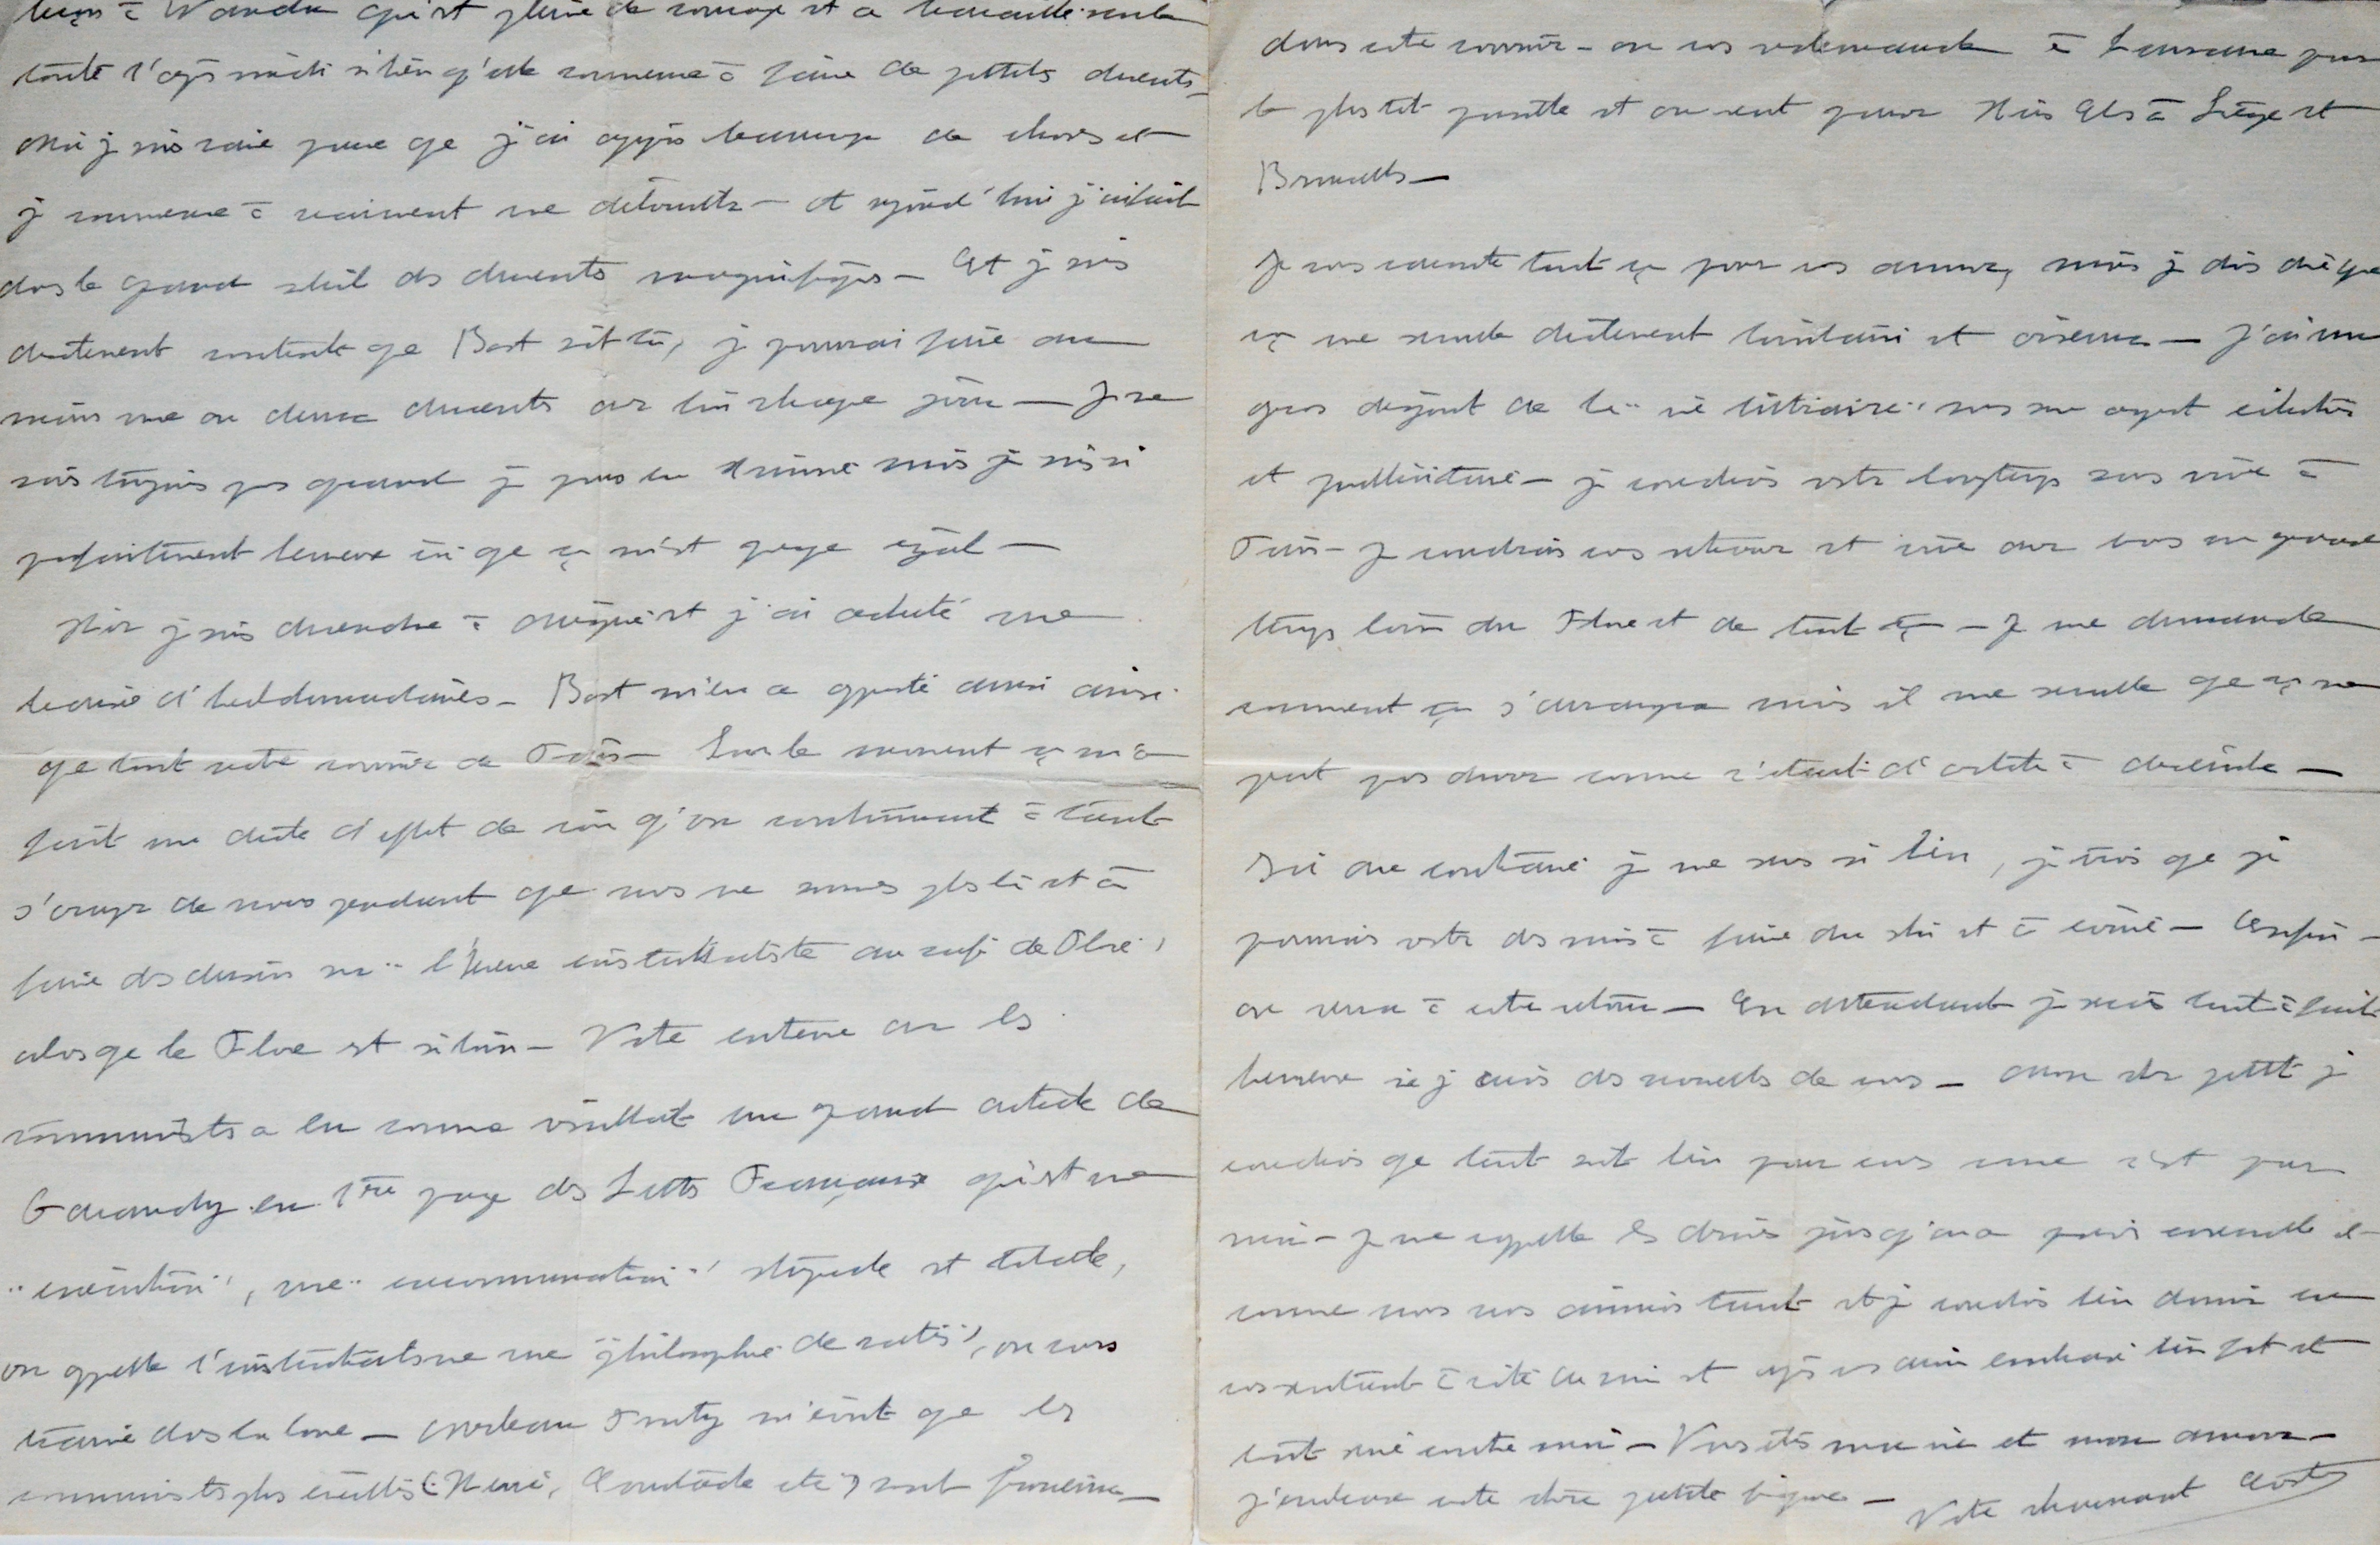 leçon à Wanda qui est pleine de courage et a travaillé seule
toute l'après midi si bien qu'elle commence à faire de petites descentes –
moi je suis ravie parce que j'ai appris beaucoup de choses et
je commence à vraiment me débrouiller – et aujourd'hui j'ai fait
dans le grand soleil des descentes magnifiques – Et je suis
drôlement contente que Bost soit là, je pourrai faire au
moins une ou deux descentes avec lui chaque jour – Je ne
sais toujours pas quand je pars en mais je suis si
parfaitement heureuse ici que ça m'est presque égal –
Hier je suis descendue à Megève et j'ai acheté une
d'hebdomadaires – Bost m'en a apporté aussi ainsi
que tout votre courrier de Paris – Sur le moment ça m'a
fait un drôle d'effet de voir qu'on continuait à tant
s'occuper de nous pendant que nous ne sommes plus là et à
faire des dessins sur "l'heure existentialiste au café de Flore",
alors que le Flore est si loin – Votre entrevue avec les
communistes a eu comme résultat un grand article de
Garaudy en 1ère page des Lettres Françaises qui est une
"exécution", une "excommunication" stupide et totale,
on appelle l'existentialisme une "philosophie de ratés", on vous
traîne dans la boue – Merleau Ponty m'écrit que les
communistes plus évolués (Hervé, Courtade etc) sont furieux –
dans votre courrier – on vous redemande à Lausanne pour
le plus tôt possible et on veut jouer Huis Clos à Liège et
Bruxelles –
Je vous raconte tout ça pour vous amuser, mais je dois dire que
ça me semble drôlement lointain et oiseux – J'ai un
gros dégoût de la "vie littéraire", sous son aspect
et publicitaire – je voudrais rester longtemps sans vivre à
Paris – Je voudrais vous retrouver et vivre avec vous un grand
temps loin du Flore et de tout ça – Je me demande
comment ça s'arrangera mais il me semble que ça ne
peut pas durer comme c'était d'octobre à décembre –
Ici au contraire je me sens si bien, je crois que je
pourrais rester des mois à faire du ski et à écrire – Enfin –
on verra à votre retour – En attendant je serais tout à fait
heureuse si j'avais des nouvelles de vous – mon cher petit je
voudrais que tout soit bien pour vous comme c'est pour
moi – Je me rappelle les derniers jours qu'on a passés ensemble et
comme nous nous aimions tant et je voudrais bien dormir en
vous sentant à côté de moi et après vous avoir embrassé bien fort et
tout serré contre moi – Vous êtes ma vie et mon amour –
J'embrasse votre chère petite figure – Votre charmant Castor